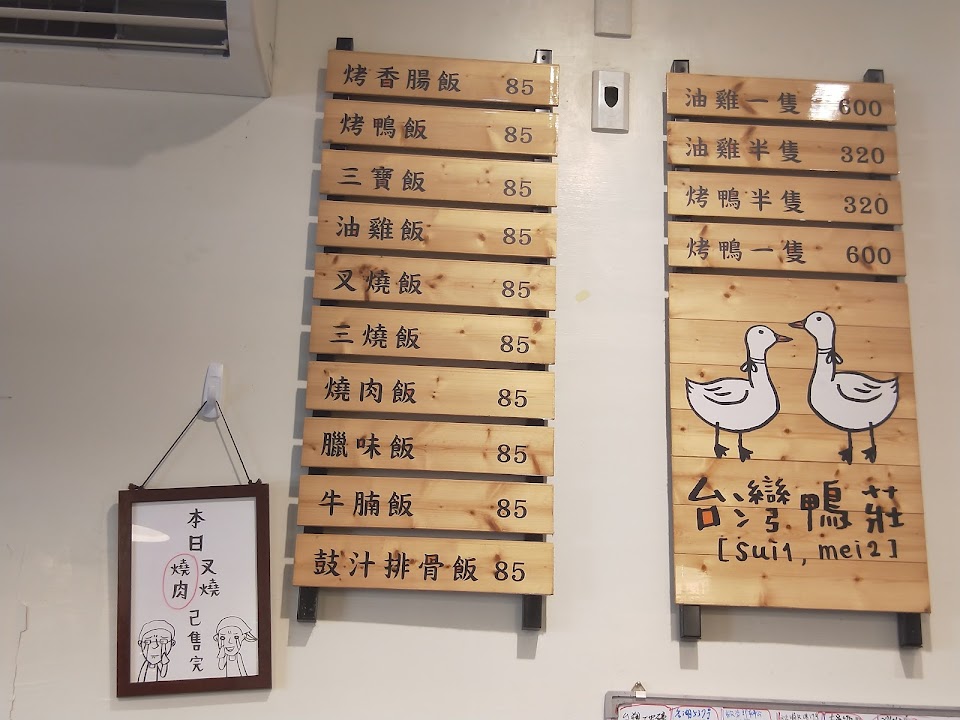 烤香腸飯 85
烤鴨飯 85
三寶飯 85
油雞飯 85
叉燒飯 85
三燒飯 85
燒肉飯 85
臘味飯 85
牛腩飯 85
鼓汁排骨飯 85
油雞一隻 600
油雞半隻 320
烤鴨半隻 320
烤鴨一隻 600
台灣鴨莊
[sui1, mei2]
本日
叉燒
燒肉
己售完